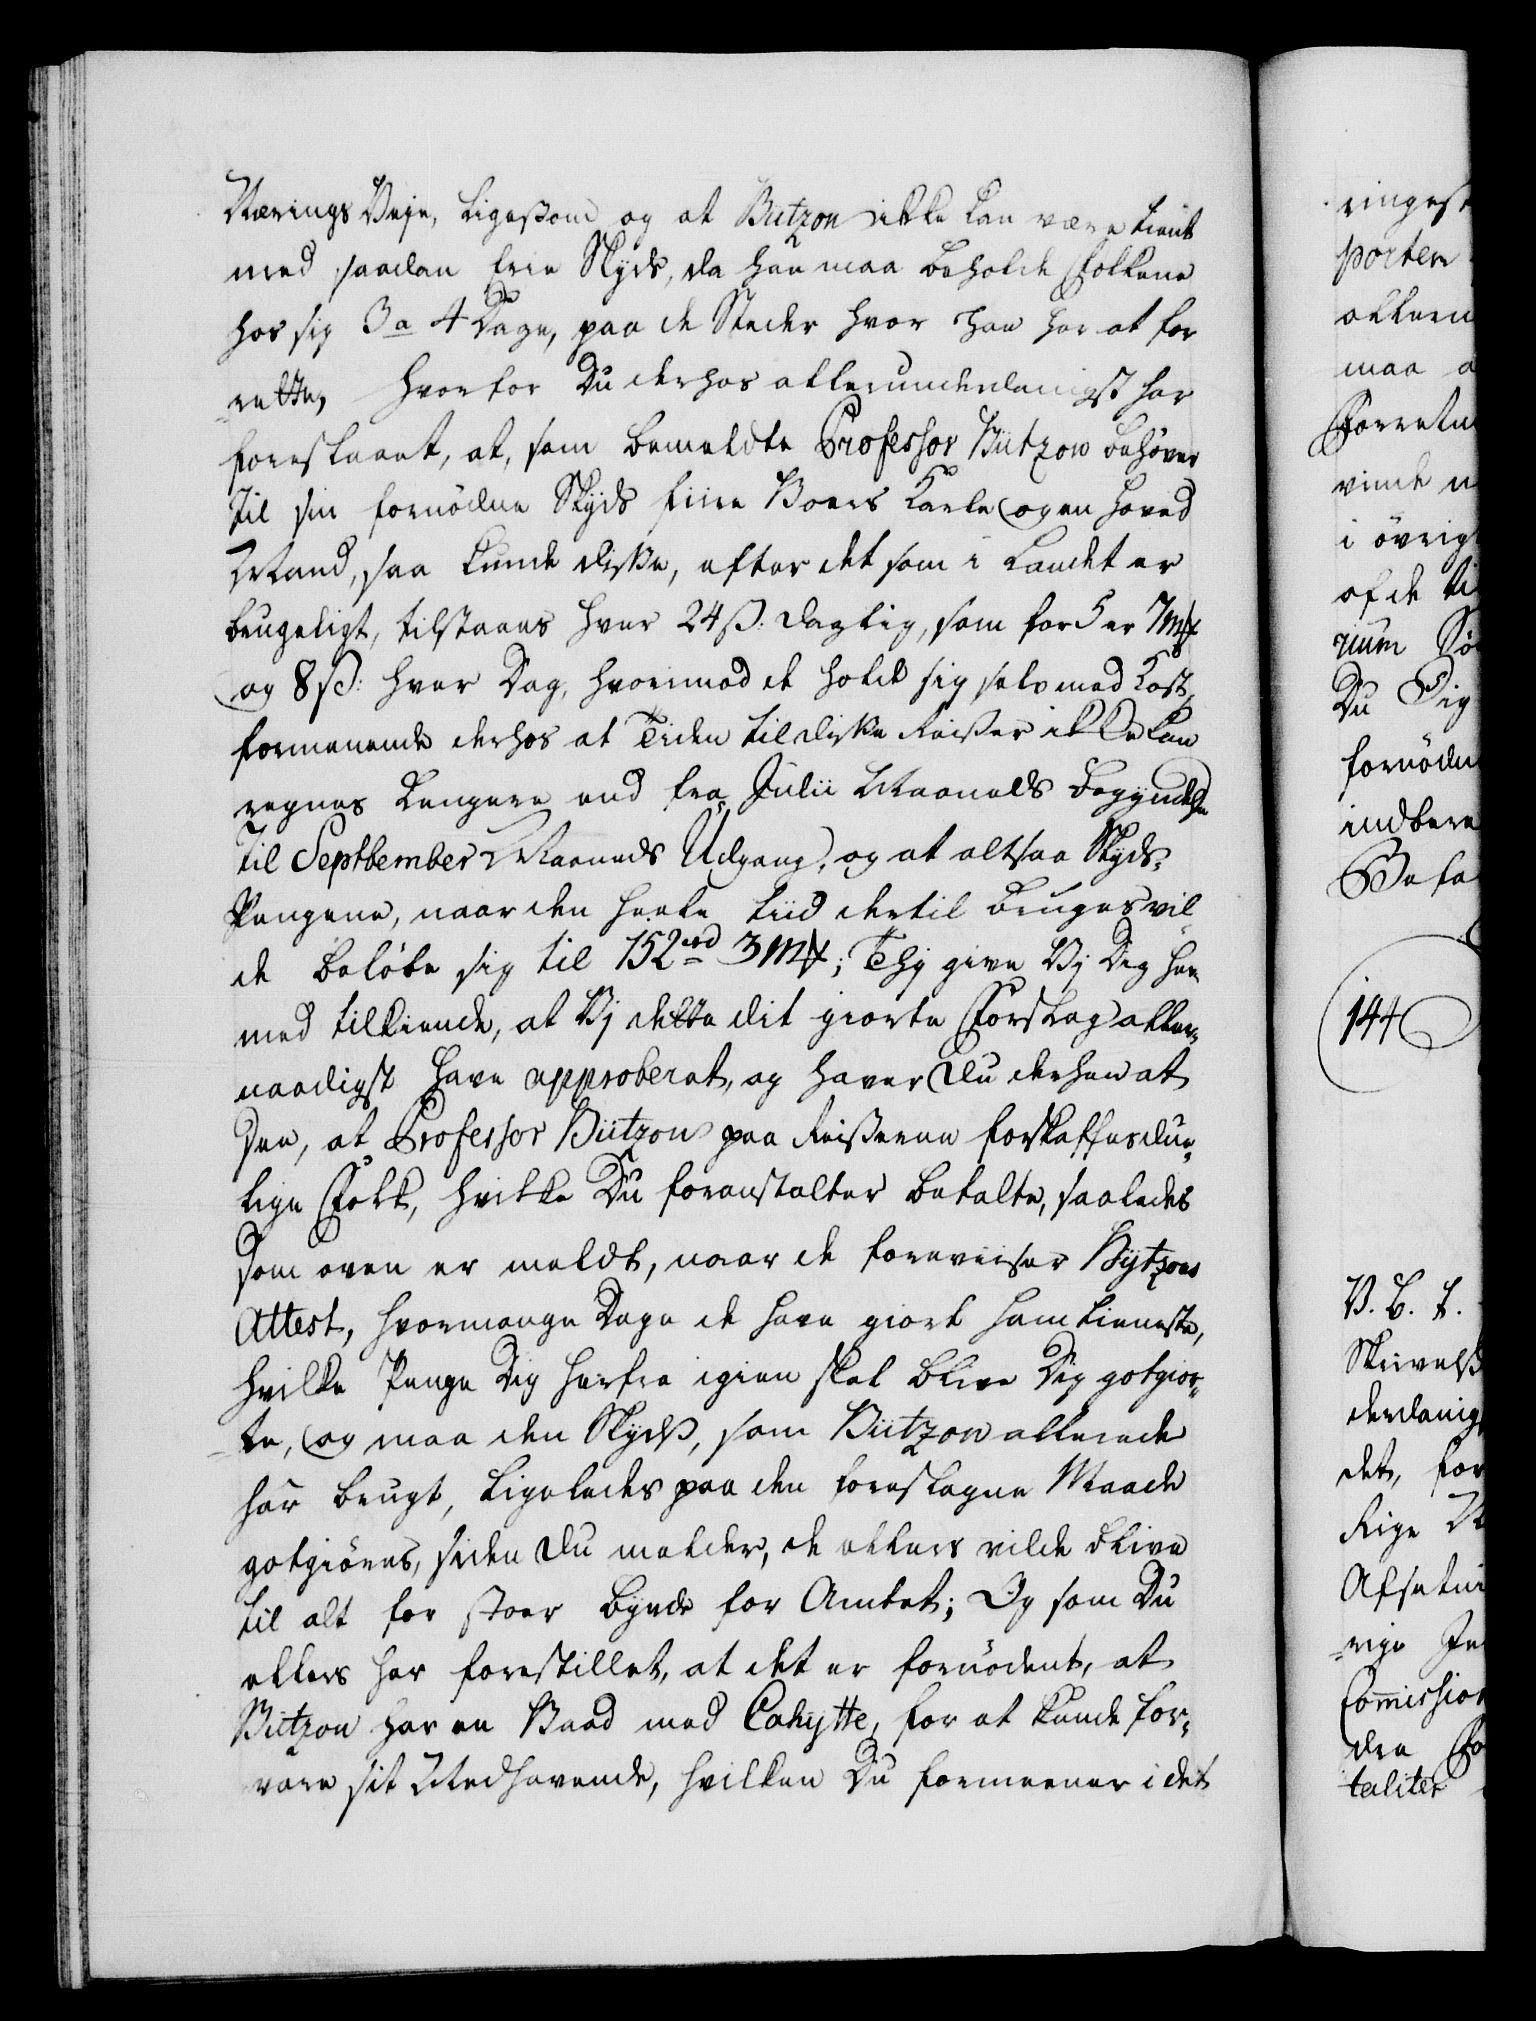 Nærings Veje, ligesom og at Bützon ikke kan være tient
med saadan frie Skyds, da han maa beholde Folkene
hos sig 3 a 4 Dage, paa de Steder hvor han har at for
rette, hvorfor Du derhos allerunderdanigst har
foreslaaet, at, som bemeldte Professor Bützow behøver
til sin fornødne Skyds fiire Boers Karle og en hoved
Mand, saa kunde disse, efter det som i Landet er
brugeligt, tilstaaes hver 24 ß: daglig, som for 5 er 7 mk
og 8 ß: hver Dag, hvorimod de holde sig selv med Kost,
formenende derhos at Tiden til disse Reiser ikke kan
regnes længere end fra Julii Maaneds Begyndelse
til Septbember Maaneds Udgang, og at altsaa Skyds-
Pengene, naar den heele Tiid dertil bruges vil
de beløbe sig til 152 rd 3 mk; Thj give Vj Dig her
med tilkiende, at Vj dette dit giorte Forslag aller-
naadigst have approberet, og haver Du derhen at
see, at Professor Bützon paa Reiserne forskaffes due-
lige Folk, hvilke Du foranstalter betalte, saaledes
som oven er meldt, naar de foreviiser Bytzons
Attest, hvormange Dage de have giort ham tieneste,
hvilke Penge Dig herfra igien skal blive Dig gotgior-
te, og maa den Skydß, som Bützon allerede
har brugt, ligeledes paa den foreslagne Maade
gotgiøres, siden Du melder, de ellers vilde blive
til alt for stoer byrde for Amtet; Og som Du
ellers har forestillet, at det er fornødent, at
Bützon har en Baad med Cahytte, for at kunde for-
vare sit Medhavende, hvilken Du formeener i det
ringest
porten
ellern
maa a
Forretn
vinde n
i øvrig
af de ti
rium Sø
Du Dig
fornødn
indbere
Befa
144
V. G. t.
Skrivelß
derdanig
det, for
Rige N
Afsetni
rige In
Commission
den Fo
taliter